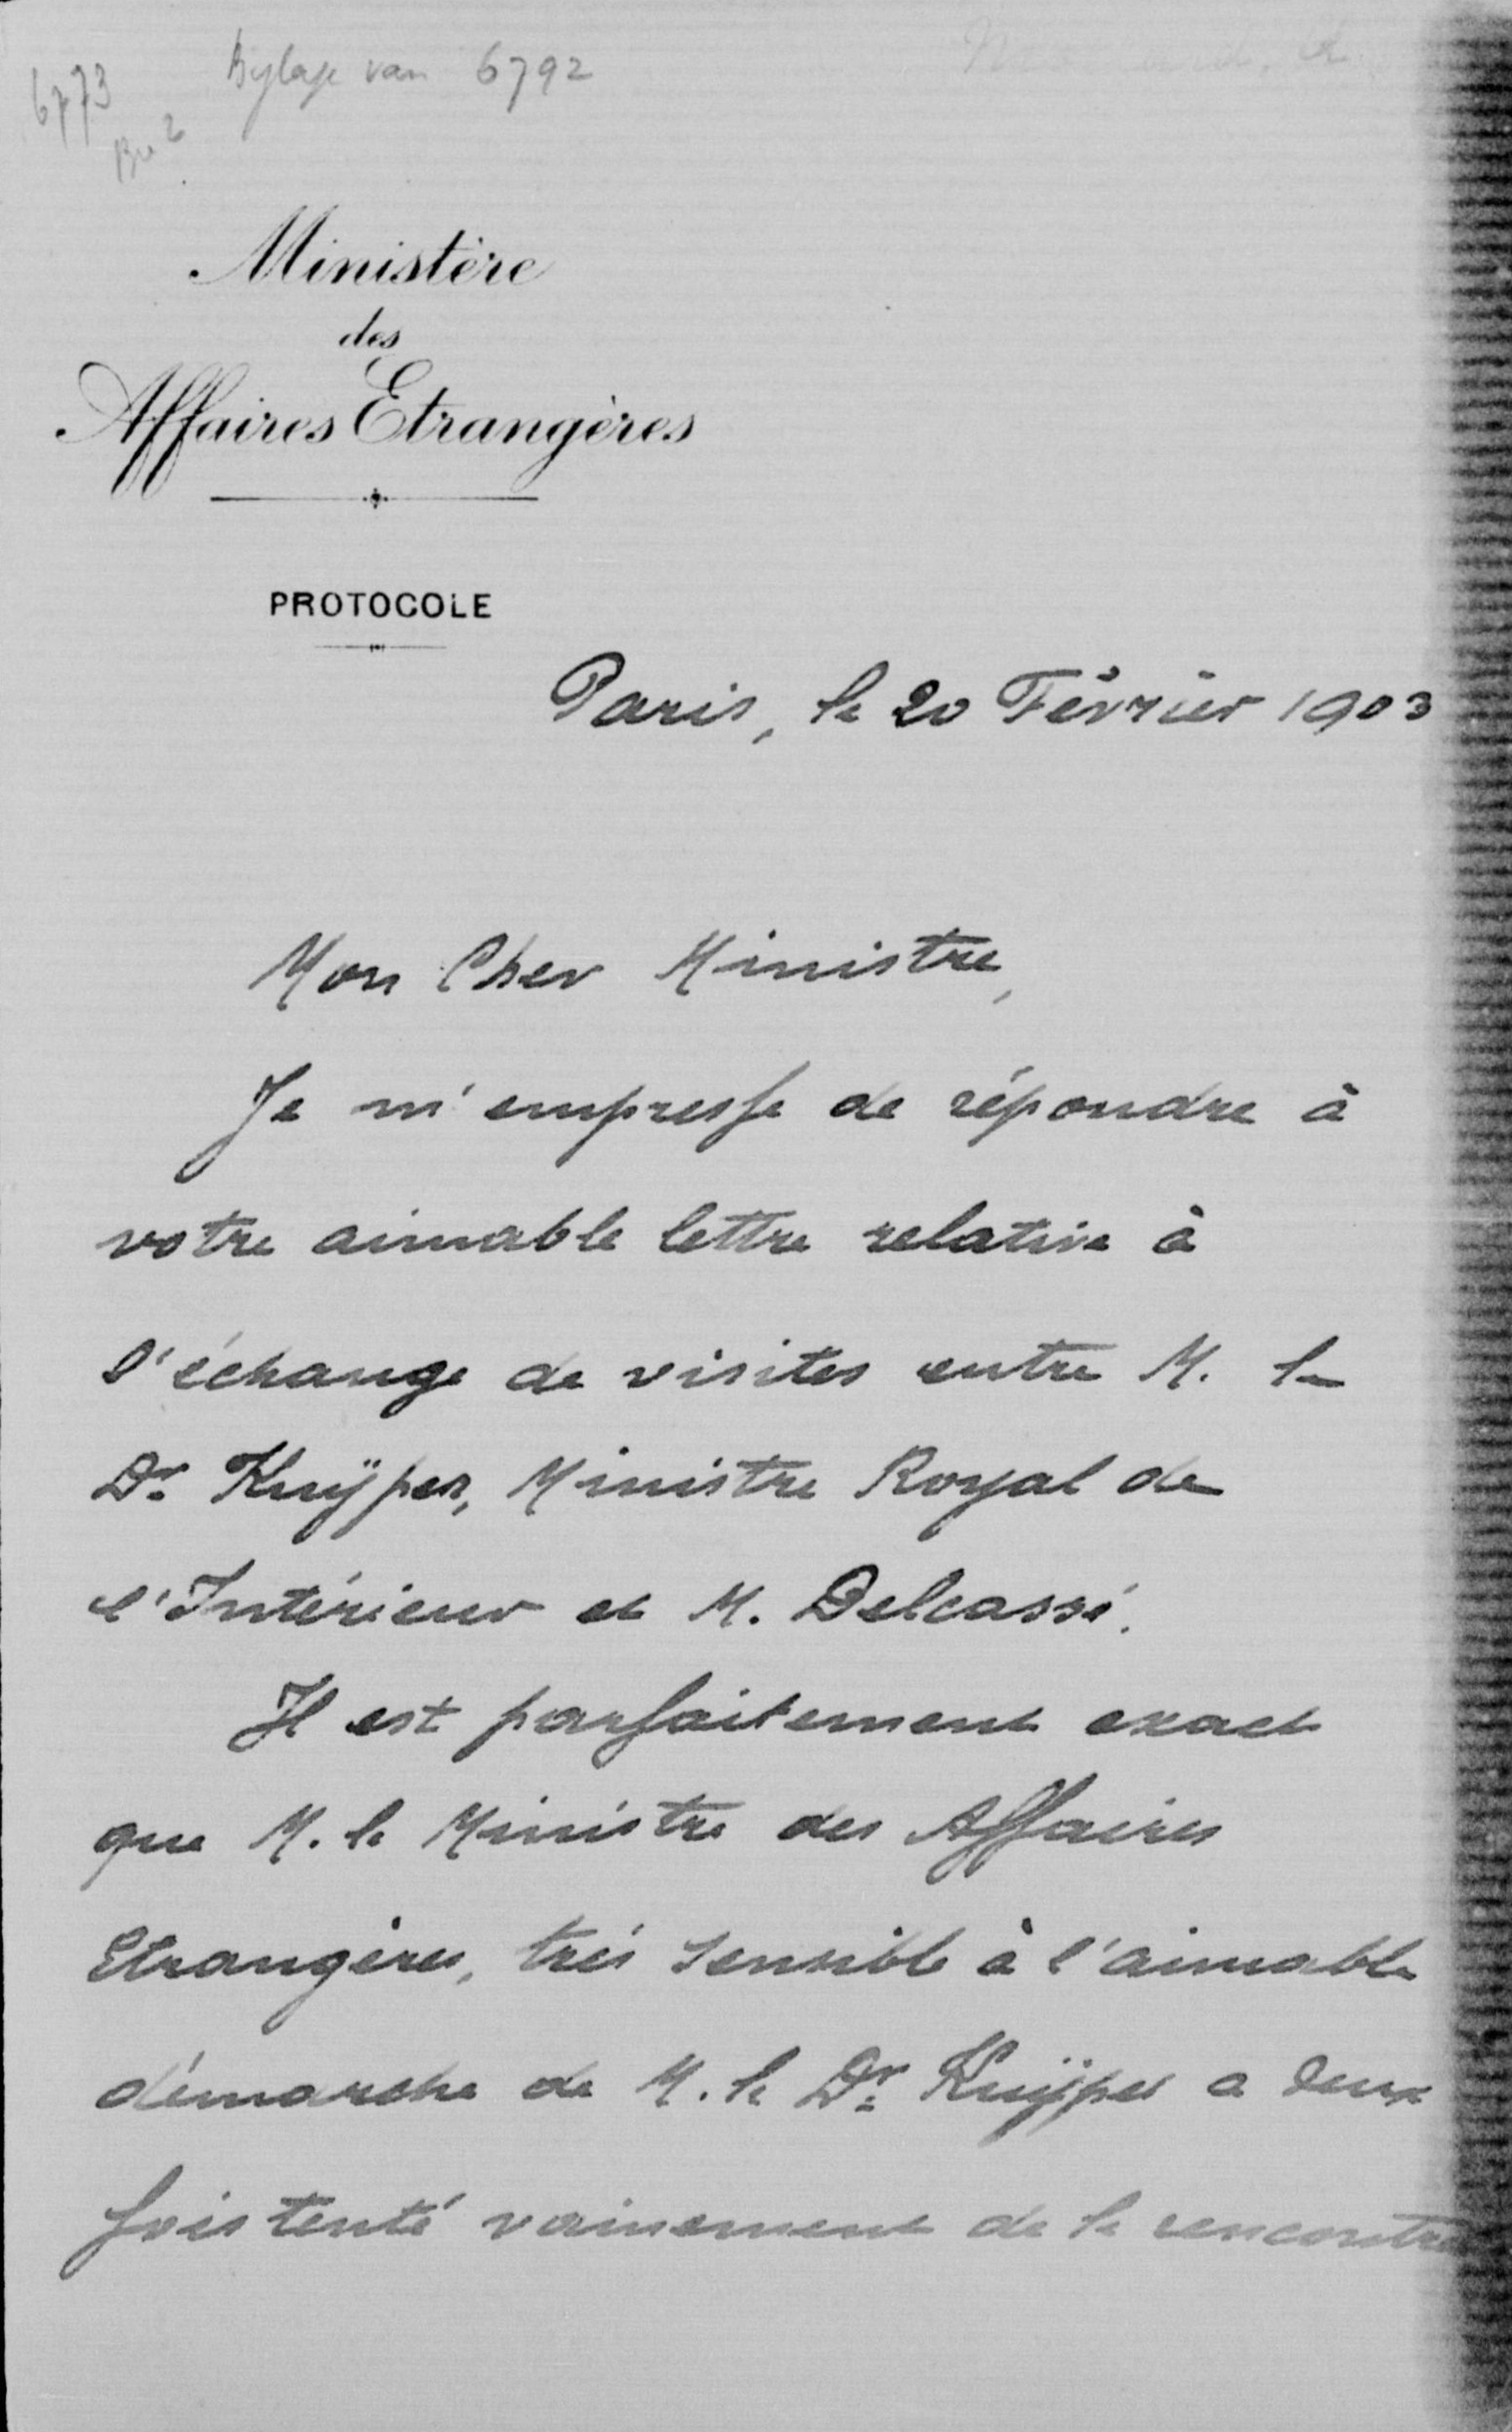 Bylage van 6792
6773
Ministère
des
Affaires Etrangères
PROTOCOLE
Paris, le 20 Février 1903
Mon Cher Ministre,
Je m'empresse de répondre à
votre aimable lettre relative à
l'échange de visites entre M. le
Dr. Kuÿper, Ministre Royal de
l'Intérieur et M. Delcassé.
Il est parfaitement exact
que M. le Ministre des Affaires
Etrangères, très sensible à l'aimable
démarche de M. le Dr. Kuÿper a deux
fois tenté vainement de le rencontrer